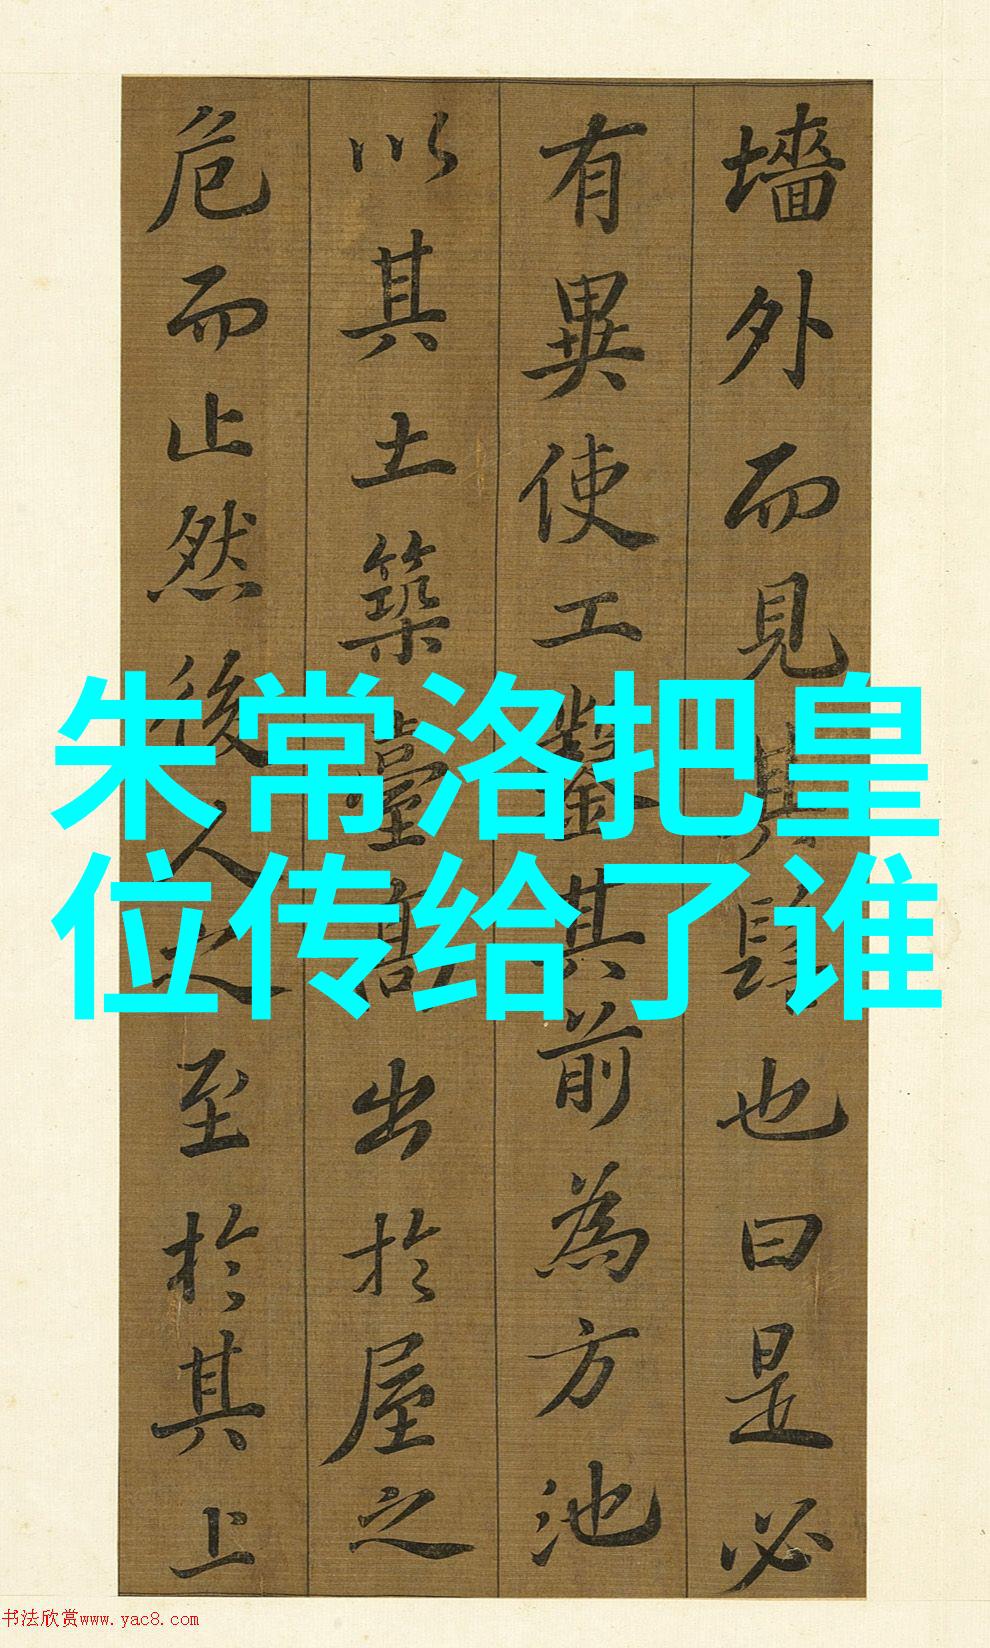 墻外而見其肆也曰是必
有異使工鑿其前為方池
以其土築臺高出於屋之
危而止然後人之至於其上
朱常洛把皇
位传给了谁
书法欣赏www.yac8.com